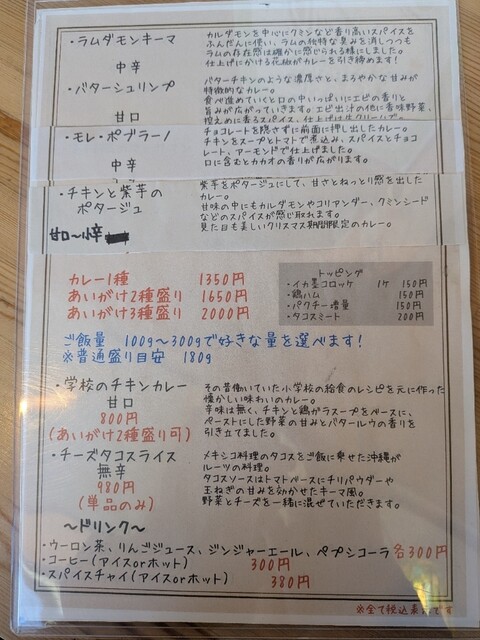 ・ラムダモンキーマ
中辛
カルダモンを中心にクミンなど香り高いスパイスを
ふんだんに使い、ラムの独特な臭みを消しつつも
ラムの存在感は確かに感じられる様にしました。
仕上げにかける花椒がカレーを引き締めます!
・バターシュリンプ
甘口
バターチキンのような濃厚さと、まろやかな甘みが
特徴的なカレー。
食べ進めていくと口の中いっぱいにエビの香りと
旨みが広がっていきます。エビ出汁の他に香味野菜、
控えめに香るスパイス、仕上げは生クリームで。
・モレ・ポブラーノ
中辛
チョコレートを隠さずに前面に押し出したカレー。
チキンをスープとトマトで煮込み、スパイスとチョコ
レート、アーモンドで仕上げました。
口に含むとカカオの香りが広がります。
・チキンと紫芋の
ポタージュ
甘口〜小辛
紫芋をポタージュにして、甘さとねっとり感を出した
カレー。
甘味の中にもカルダモンやコリアンダー、クミンシード
などのスパイスが感じ取れます。
見た目も美しいクリスマス期間限定のカレー。
カレー1種 1350円
あいがけ2種盛り 1650円
あいがけ3種盛り 2000円
トッピング
・イカ墨コロッケ 1ケ 150円
・鶏ハム 150円
・パクチー増量 150円
・タコスミート 200円
ご飯量 100g〜300gで好きな量を選べます!
※普通盛り目安 180g
・学校のチキンカレー
甘口
800円
(あいがけ2種盛り可)
その昔働いていた小学校の給食のレシピを元に作った
懐かしい味わいのカレー。
辛味は無く、チキンと鶏がらスープをベースに、
ペーストにした野菜の甘みとバタールウの香りを
引き立てました。
・チーズタコスライス
無辛
980円
(単品のみ)
メキシコ料理のタコスをご飯に乗せた沖縄が
ルーツの料理。
タコスソースはトマトベースにチリパウダーや
玉ねぎの甘みを効かせたキーマ風。
野菜とチーズを一緒に混ぜていただきます。
〜ドリンク〜
・ウーロン茶、りんごジュース、ジンジャーエール、ペプシコーラ 各300円
・コーヒー(アイスorホット) 300円
・スパイスチャイ(アイスorホット) 380円
※全て税込表示です